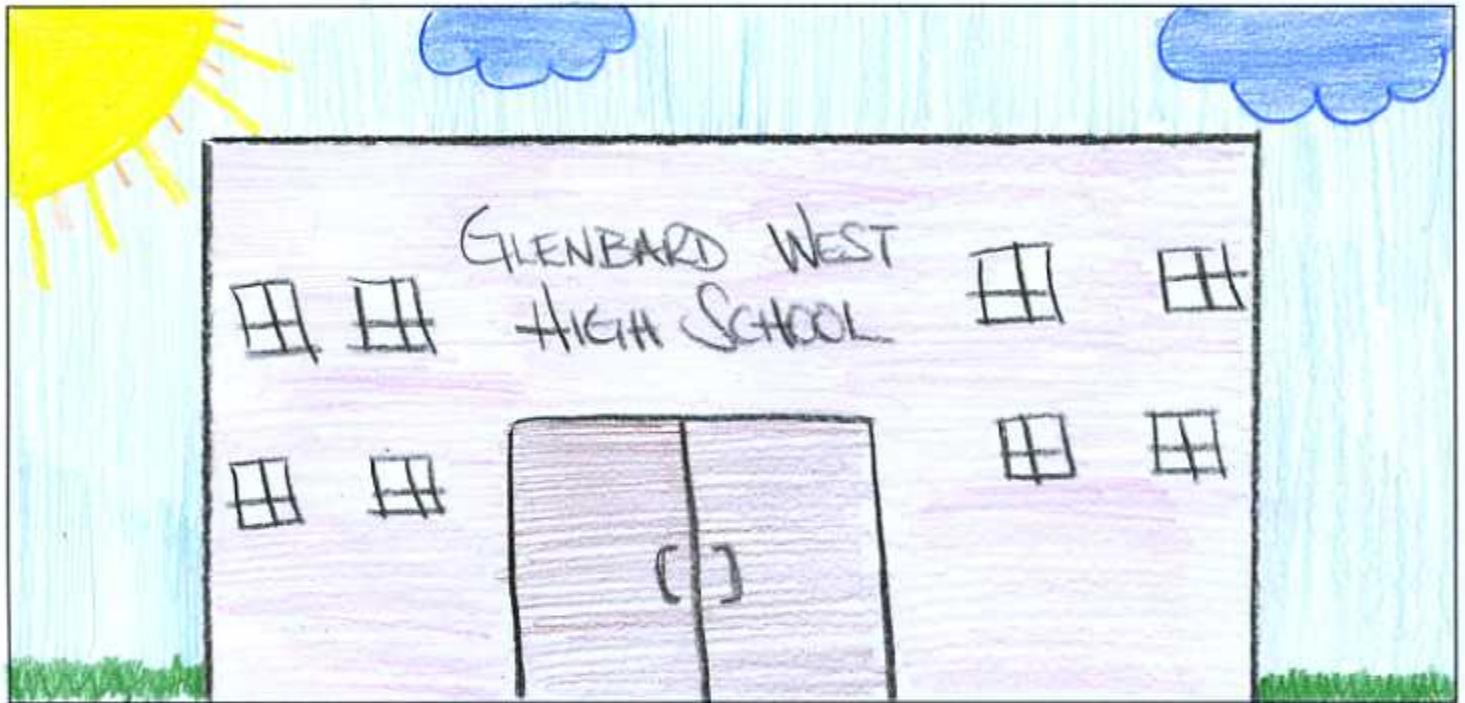 GLENBARD WEST
HIGH SCHOOL